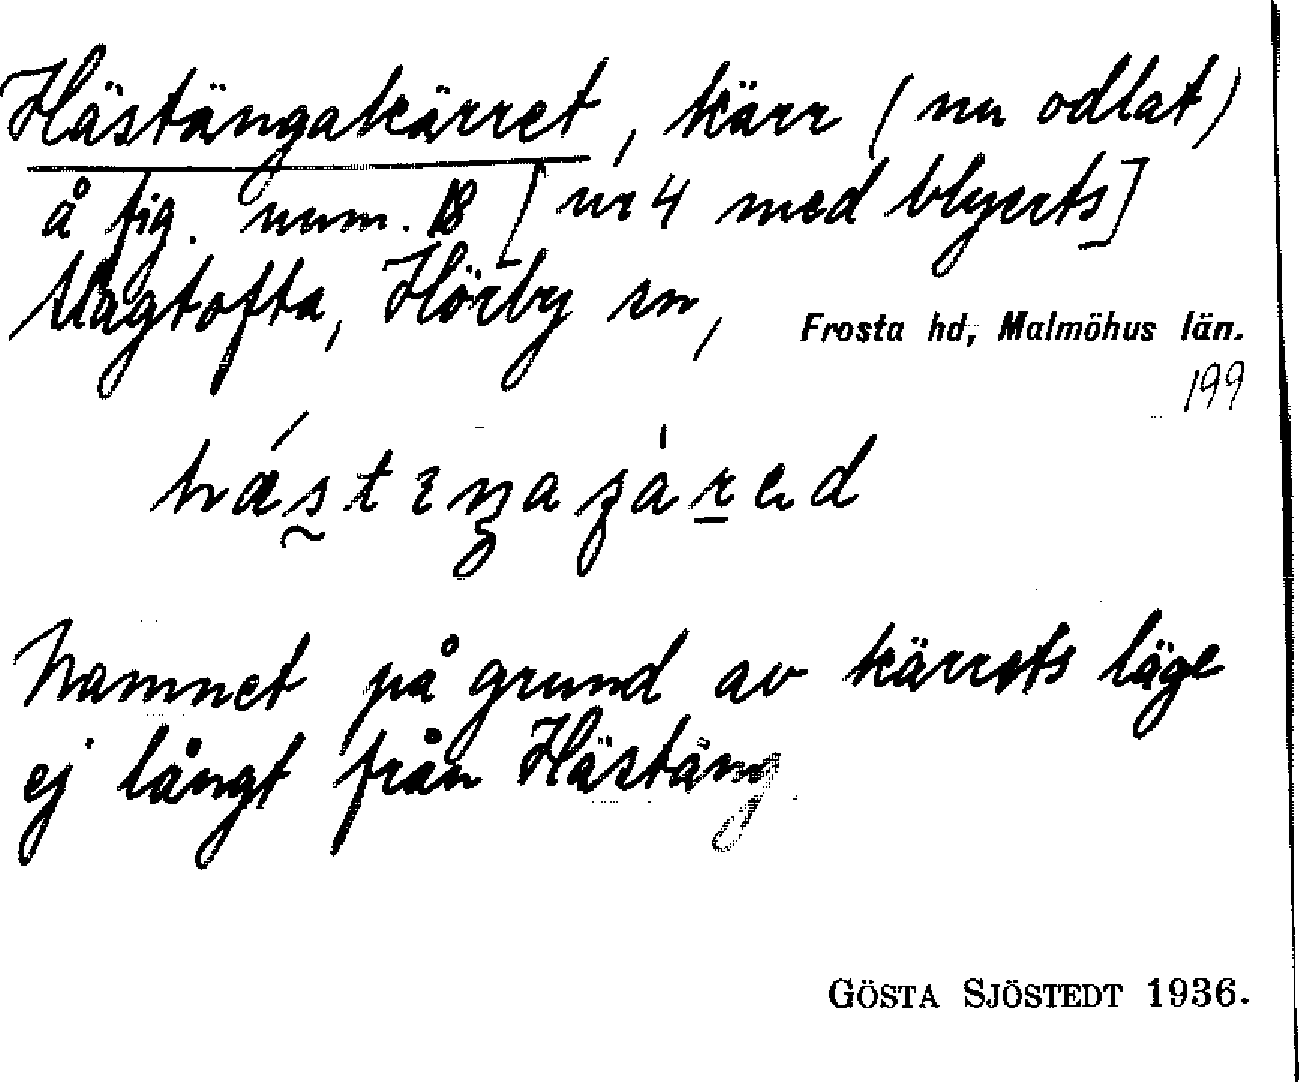 Hästängakärret, kärr (nu odlat)
å fig. num. 18 [nr 4 med blyerts]
Slagtofta, Hörby sn, Frosta hd, Malmöhus län.
199
Namnet på grund av kärrets läge
ej långt från Hästäng
GÖSTA SJÖSTEDT 1936.